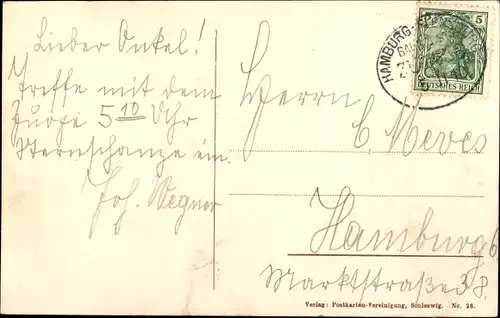 Lieber Onkel!
Treffe mit dem
Zuge 5 10 Uhr
Sternschanze ein.
Joh. Wegner
Herrn
C. Meves
Hamburg 6
Marktstraße 38.
HAMBURG-
5
DEUTSCHES REICH
Verlag: Postkarten-Vereinigung, Schleswig. Nr. 26.